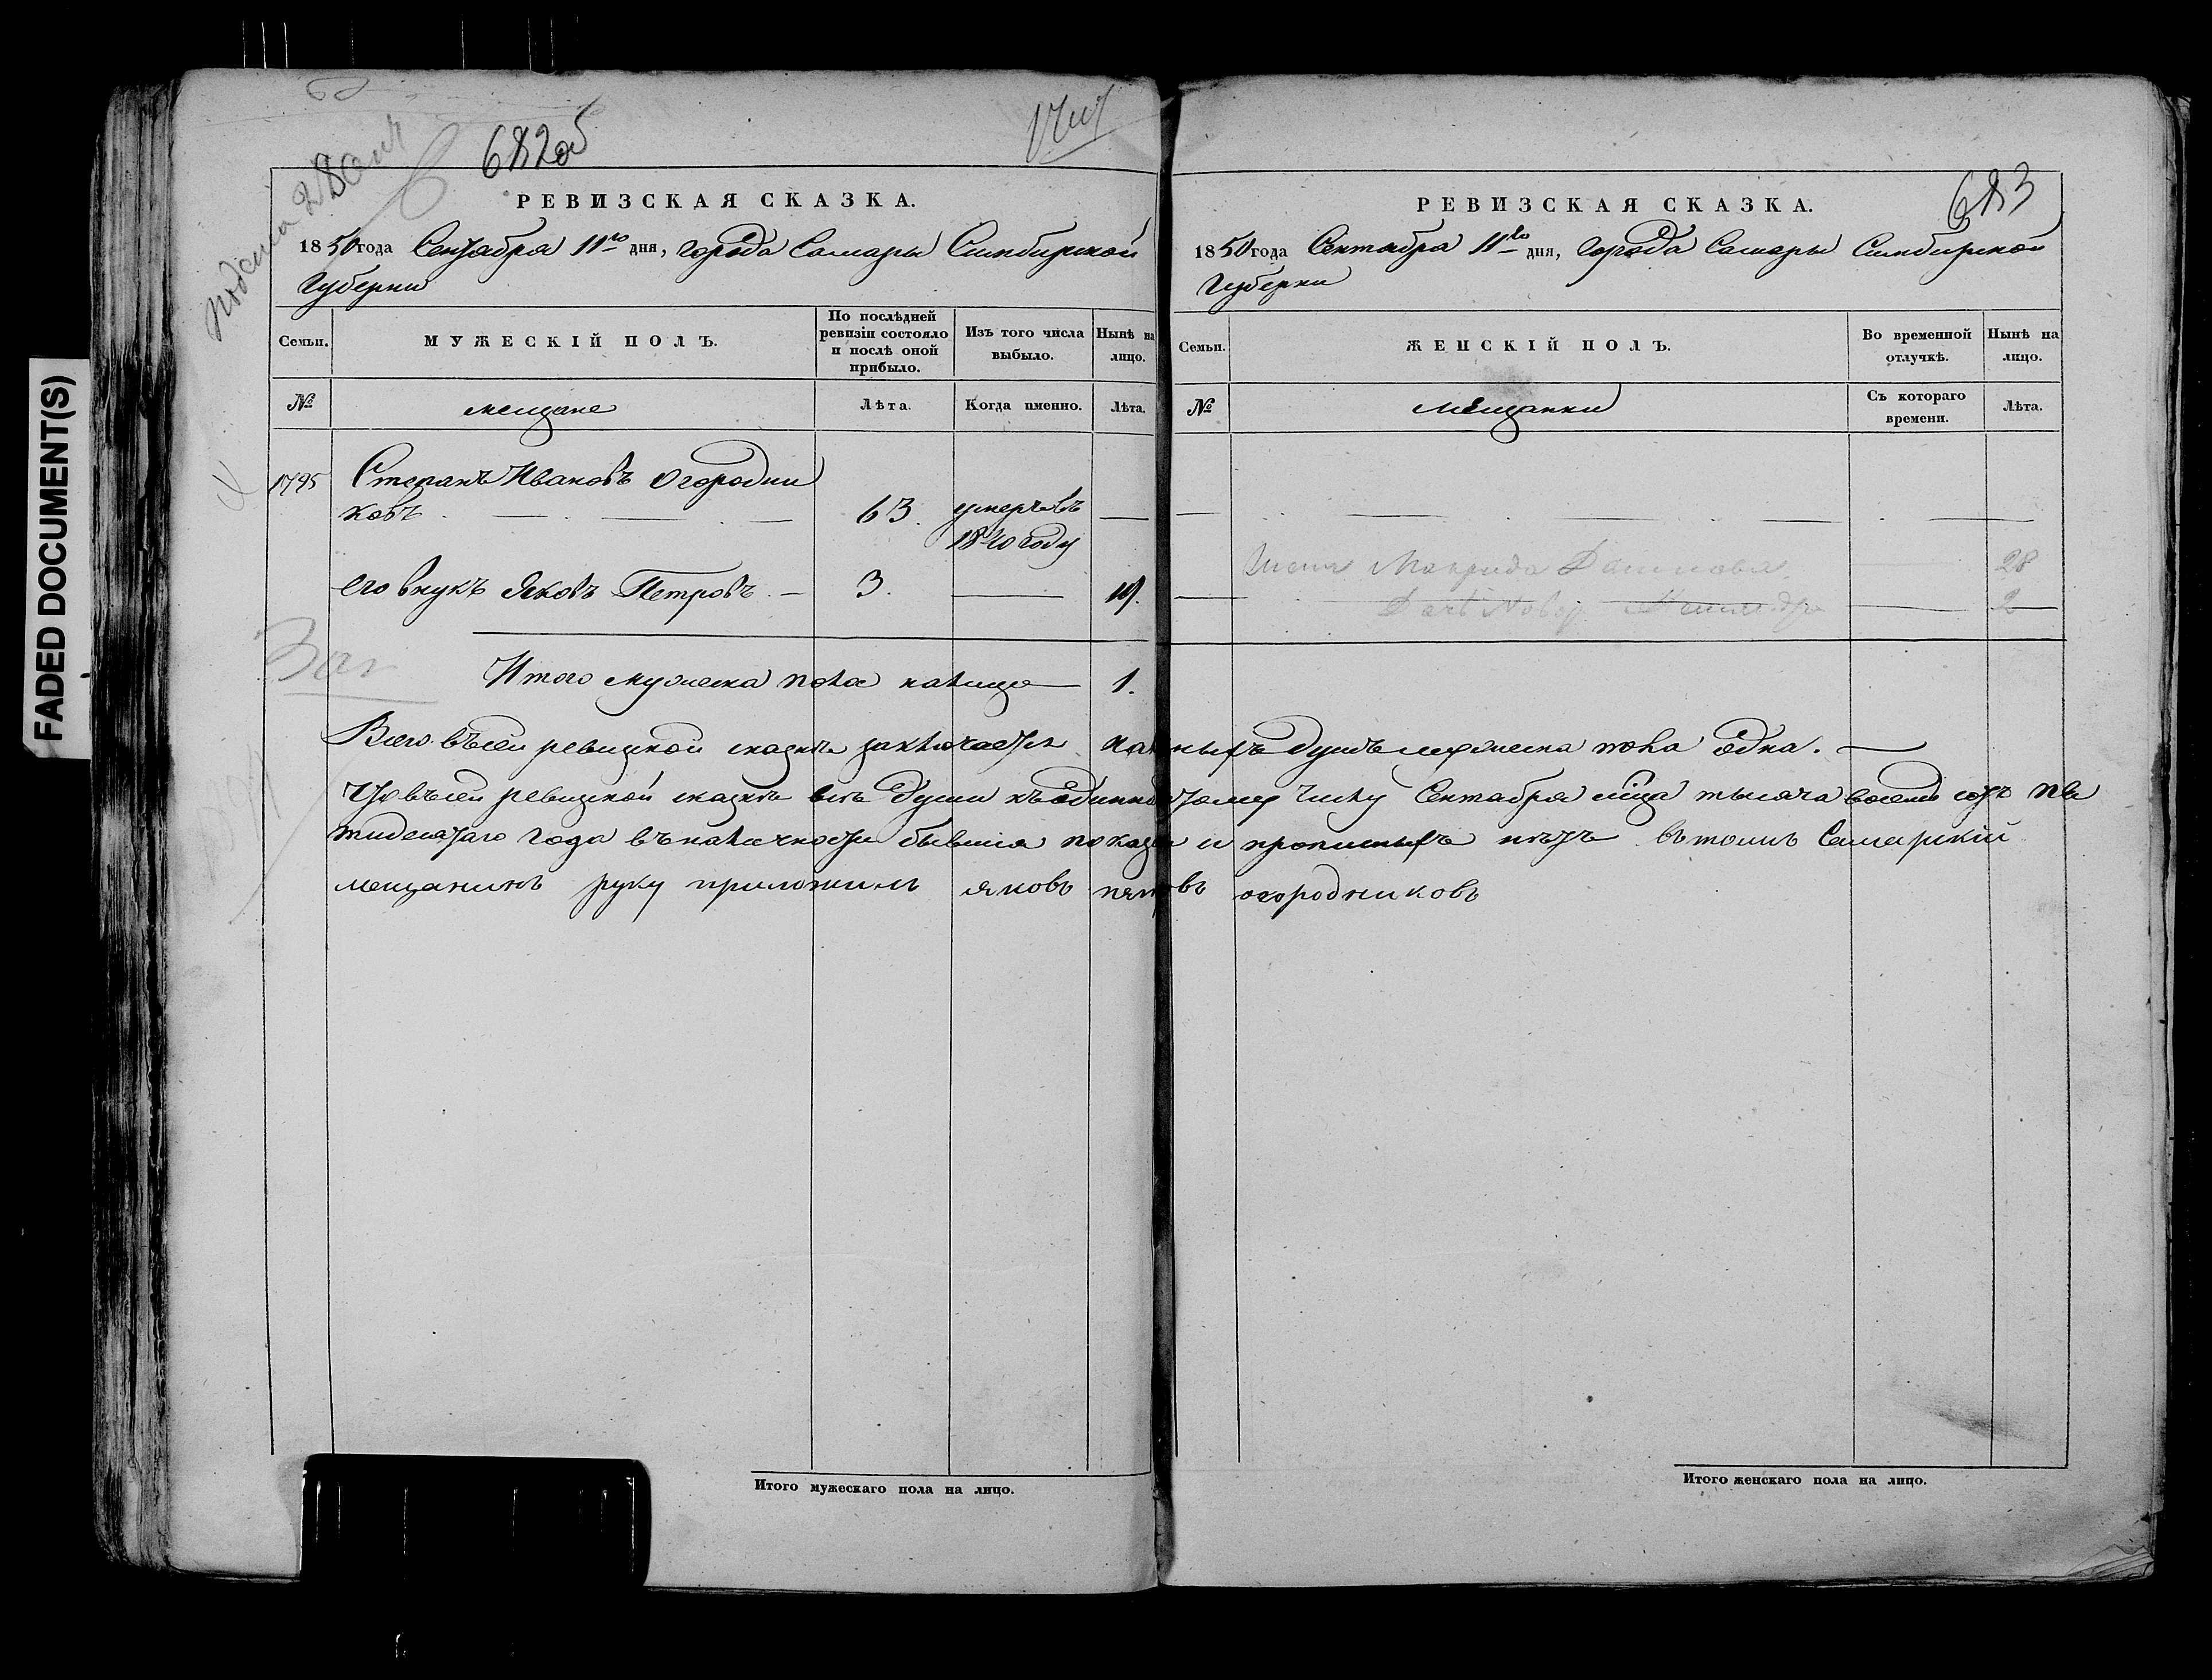 FADED DOCUMENT(S)
682об
РЕВИЗСКАЯ СКАЗКА.
1850 года Сентября 11го дня, города Самары Симбирской
Губернии
Семьи.
МУЖЕСКІЙ ПОЛЪ.
По послѣдней
ревизіи состояло
и послѣ оной
прибыло.
Изъ того числа
выбыло.
Нынѣ на
лицо.
№
мещане
Лѣта.
Когда именно.
Лѣта.
1795
Степанъ Ивановъ Огородни
ковъ 63. умеръ въ
1840 году
его внукъ Яковъ Петровъ 3. 19.
Итого мужеска пола налицо 1.
683
РЕВИЗСКАЯ СКАЗКА.
1850 года Сентября 11го дня, города Самары Симбирской
Губернии
Семьи.
ЖЕНСКІЙ ПОЛЪ.
Во временной
отлучкѣ.
Нынѣ на
лицо.
№
мещанки
Съ котораго
времени.
Лѣта.
Маврида 28
2
Всего въ сей ревизкой сказке заключается наличныхъ душъ мужеска пола одна.
Что въ сей ревизкой сказке все души къ одиннадцатому числу Сентября мца тысяча восемь сотъ пя
тидесятаго года въ наличности бывшия показаны и прописныхъ нетъ въ томъ Самарский
мещанинъ руку приложилъ яковъ петровъ огородниковъ
Итого мужескаго пола на лицо.
Итого женскаго пола на лицо.